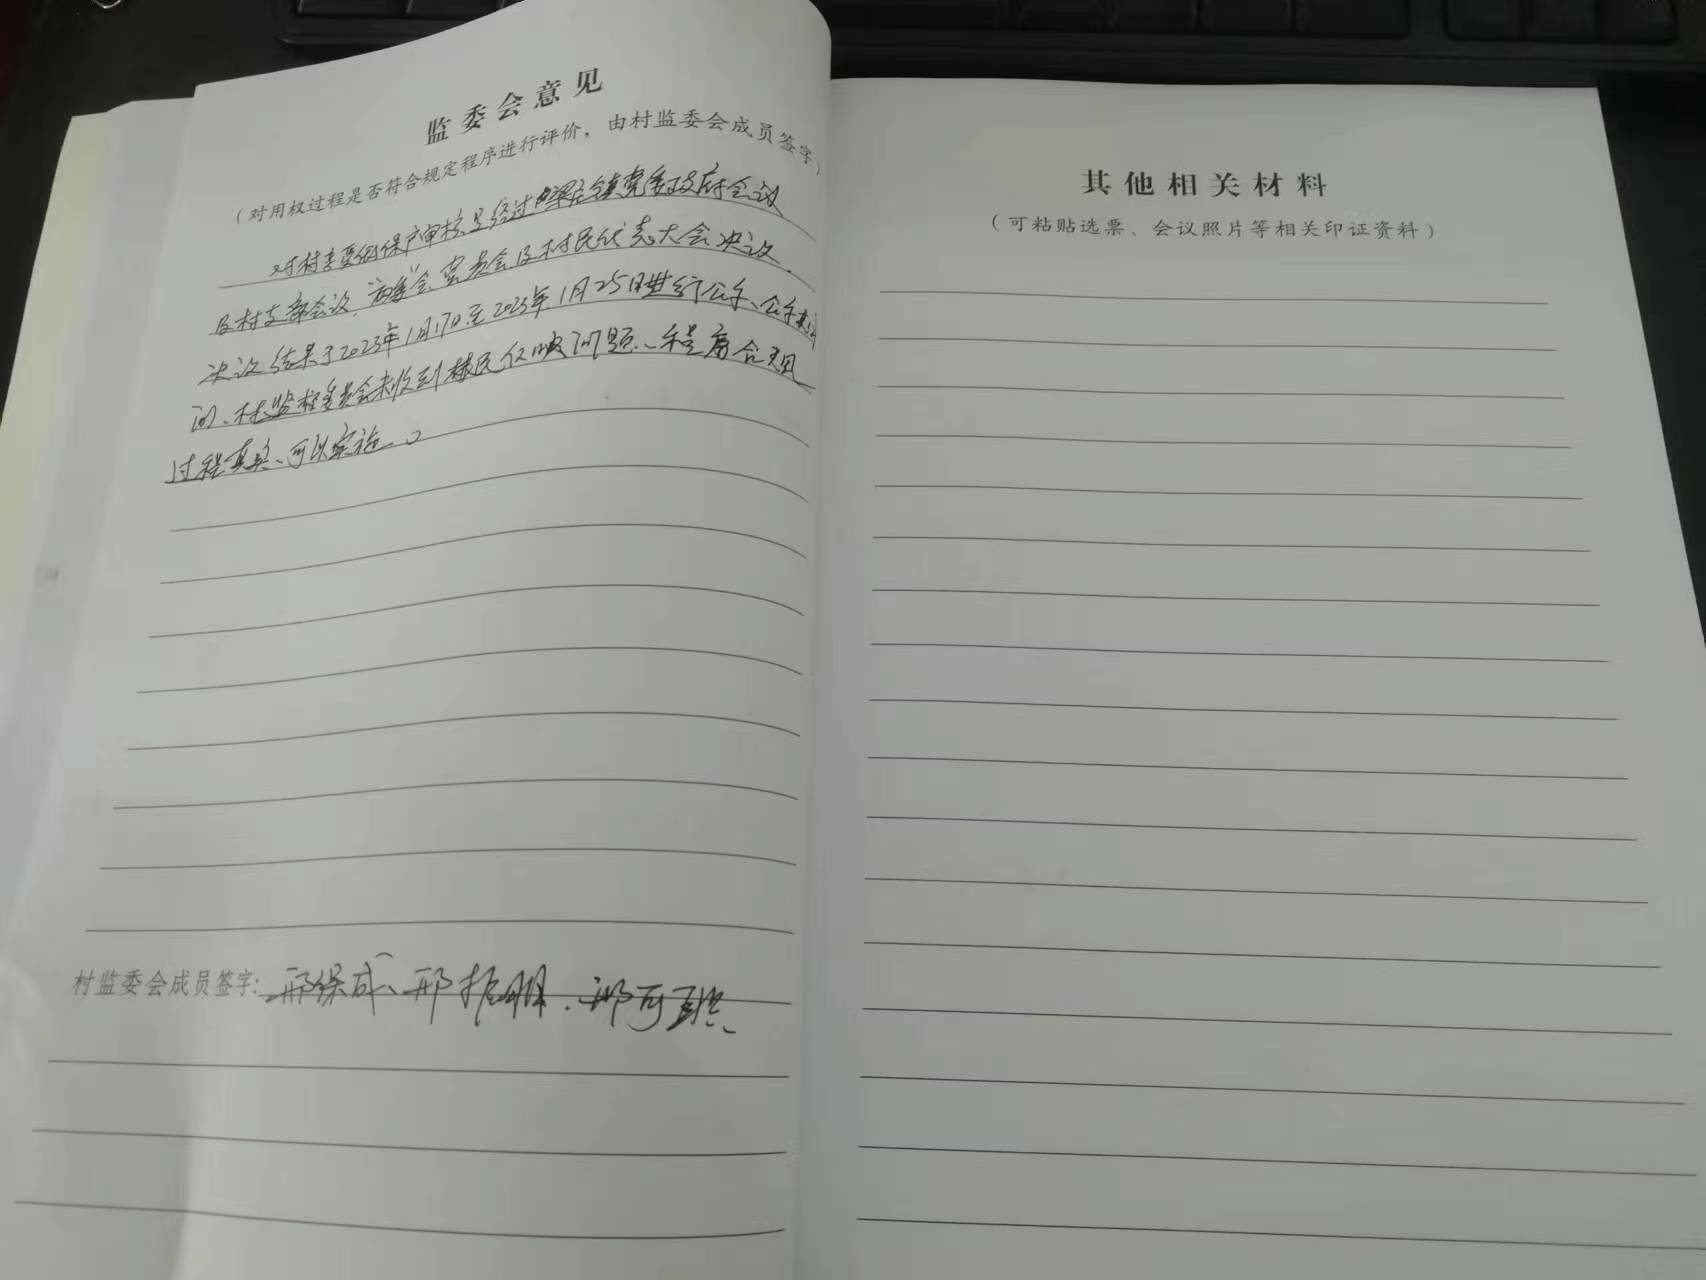 监委会意见
（对用权过程是否符合规定程序进行评价，由村监委会成员签字）
对村享受低保户审核是经过梁庄镇党委政府会议
及村支部会议、两委会、党员会及村民代表大会决议.
决议结果于2023年1月17日至2023年1月25日进行公示、公示期间
的、村监督委员会未收到村民反映问题、程序合规
过程真实、可以实施。
村监委会成员签字:邢保成、邢振明、邢可
其他相关材料
（可粘贴选票、会议照片等相关印证资料）